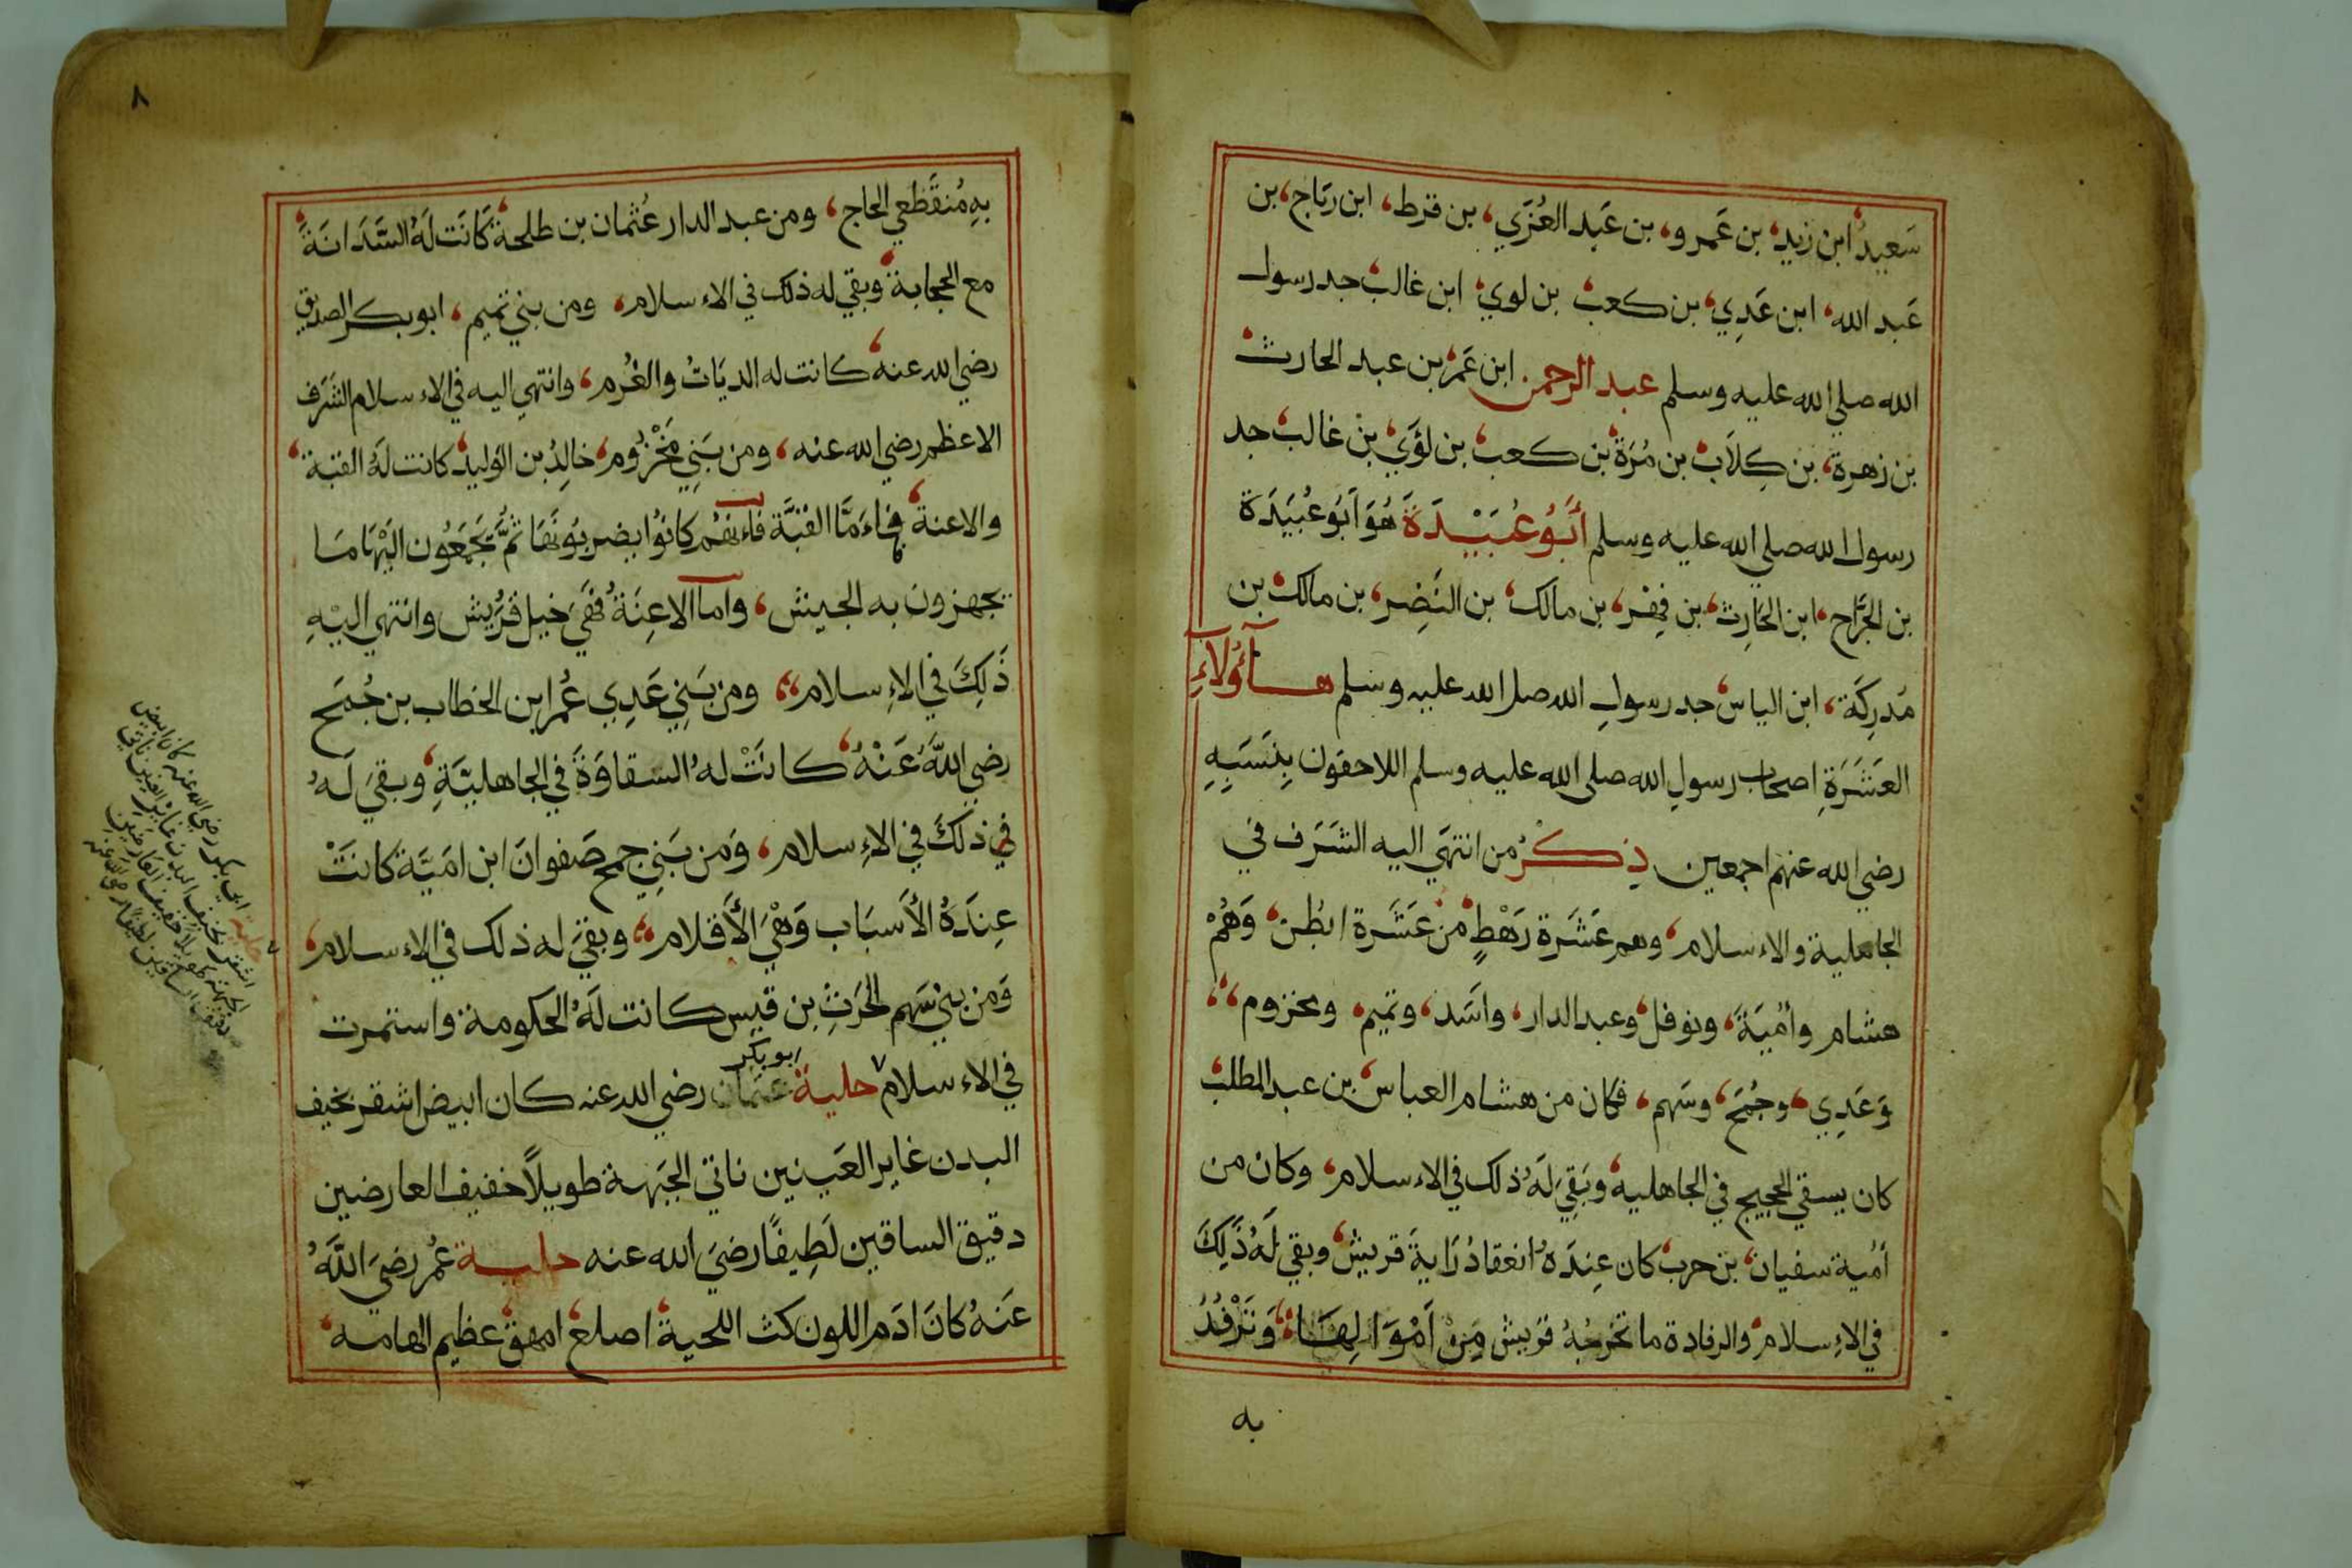 سَعيدُ ابن زيد، بن عَمرو، بن عَبد العُزَي، بن قرط، ابن رياح، بن
عَبد الله، ابن عَدِي، بن كعب، بن لوي، ابن غالب، جد رسول
الله صلي الله عليه وسلم عبد الرحمن ابن عَمر بن عبد الحارث
بن زهرة، بن كِلَاب، بن مُرَة بن كعب، بن لؤَي، بن غالب، جد
رسول الله صلي الله عليه وسلم أَبُو عُبَيْدَةَ هُوَ اَبُو عُبَيَدَة
بن الجَرَّاح، ابن الحَارِث، بن فِهْر، بن مالك، بن النَضِر، بن مالك، بن
مُدرِكَة، ابن الياس، جد رسولِ الله صلي الله عليه وسلم هآؤُلَاءِ
العَشَرَةِ اصحاب رسولِ الله صلي الله عليه وسلم اللاحقون بِنَسَبِهِ
رضي الله عنهم اجمعين ذِكْرُ من انتهَي اليه الشَرَف في
الجاهلية والاءسلام، وهم عَشَرة رَهْطٍ من عَشَرة ابطُن، وَهُمْ
هشام وأُمَيَةَ، ونوفل، وعبد الدار، واسَد، وتميم، ومخزوم،،
وَعَدِي، وجُمَح، وسَهم، فكان من هشام العباس، بن عبد المطلب
كان يسقي الحجيج في الجاهلية، وبَقِيَ لَهُ ذلك في الاءسلام، وكان من
أُمية سفيان، بن حرب، كان عِندَهُ انعقادُ رَايةَ قريش، وبقي لَهُ ذَلِكَ
في الاءِسلام، والرفادة ما تخرجُهُ قريش مِنْ اَمْوَالِهَا،، وَتَرْفُدُ
به
٨
بهِ مُنقَطعي الحاج، ومن عبد الدار عُثمان بن طلحة، كَانَت لَهُ السَّدَانَةَ،
مع الحجابة، وبقي له ذلك في الاءسلام، ومن بني تميم، ابو بكر الصديق
رضي الله عنه، كانت له الديَاتُ والغُرم، وانتهي اليه في الاءسلام الشَرَف
الاعظم رضي الله عنه، ومن بَنِي مَخْزُوم، خالِدُ بن الوليد، كانت لَهُ القبة،
والاعنة، فاءَمَّا القُبَّة فاءنهُم كانوُا يضربُونَهَا ثُمَّ يَجمَعُون اليْهَا مَا
يجهزون به الجيش، واما الاعِنَةُ فهَيَ خيل قُرَيش وانتهي اليْهِ
ذَلِكَ في الاءِسلام،، ومن بَنِي عَدِي عُمر ابن الخطاب بن جُمَح
رضي اللَّهُ عَنْهُ، كانَتْ لهُ السقاوَةَ في الجاهليَّةِ، وبقيَ لَهُ
في ذلكَ في الاءِسلام، وَمن بَنِي جمح صَفوانَ ابن امَيَّة كانَتْ
عِندَهُ الأَسبَاب وَهْيَ الأَقلام،، وبقيَ له ذلك في الاءسلام،
وَمن بني سَهم الحَرَثِ بن قيس كانت لَهُ الحكومة واستمرت
ابو بكر
في الاءسلام حلية عثمان رضي الله عنه كان ابيض اشقر نحيف
البدن غاير العَينين ناتي الجَبهة طويلاً خفيف العارضين
دقيق الساقين لَطِيفًا رضيَ الله عنه حليـة عُمر رضيَ اللَّهُ
عَنهُ كانَ ادَم اللون كث اللحية، اصلع، امهق، عظيم الهامه،
حلية ابي بكر رضي الله عنه كان ابيض
اشقر نحيف البدن غاير العينين ناتي
الجبهة طويلا خفيف العارضين
دقيق الساقين لطيفا رضي الله عنه